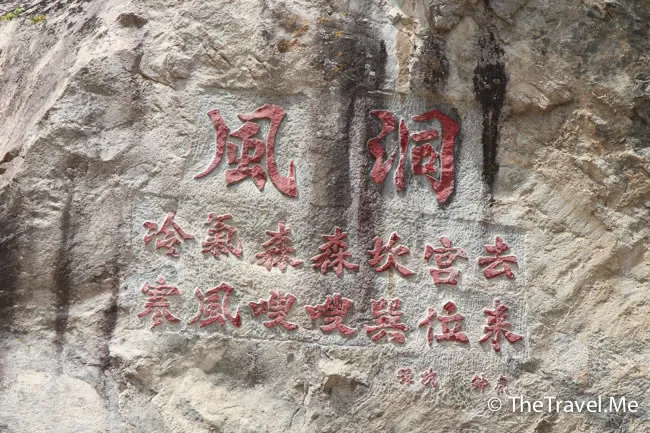 風洞
冷氣森森坎宮去
寒風嗖嗖巽位来
© TheTravel.Me